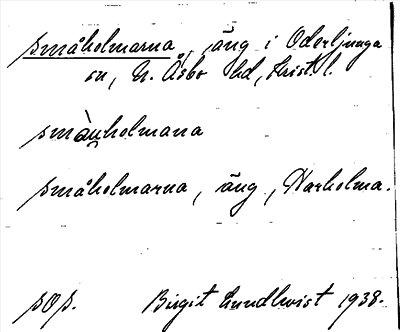 småholmarna, äng i Oderljunga
sn, N. Åsbo hd, Krist. l.
smàu̯holmana
småholmarna, äng, Harholma.
sOp. Birgit Lundkvist 1938.